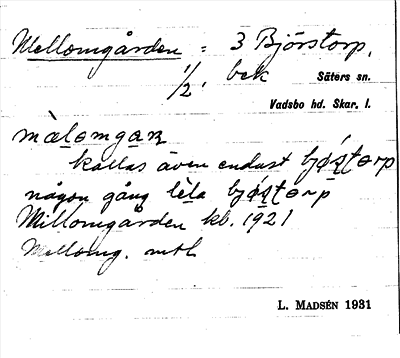 Mellomgården = 3 Björstorp,
1/2, bek Säters sn.
Vadsbo hd. Skar. l.
màlomgaʀ
kallas även endast bjǿʂʈorp
någon gång lèla bjǿʂʈorp
Millomgården kb. 1921
Mellomg. mtl
L. MADSÉN 1931